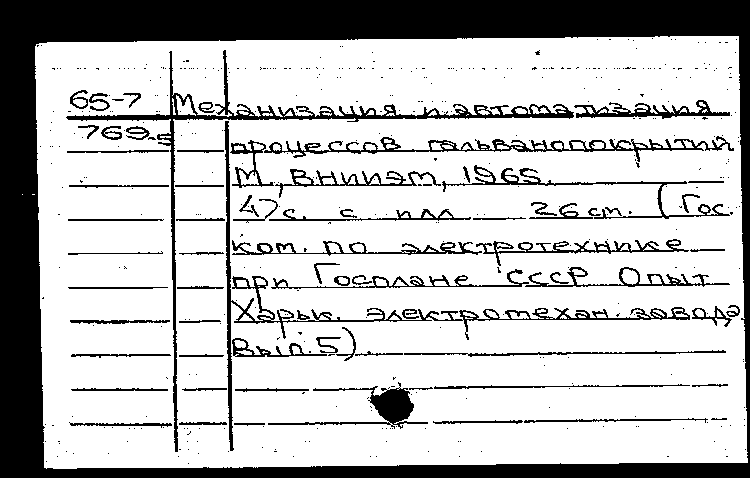 65-7 Механизация и автоматизация
769-5
процессов гальванопокрытий
М., ВНИИЭМ, 1965.
47 с. с илл 26 cm. (Гос.
ком. по электротехнике
при Госплане СССР Опыт
Харьк. электромехан. завода.
Вып. 5).